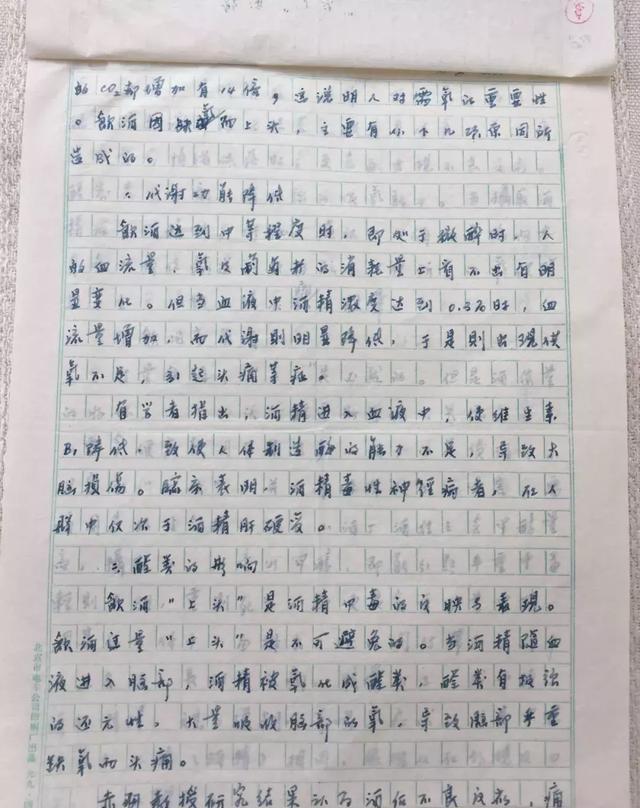 的CO₂却增加有14倍，这说明人对需氧的重要性
。飲酒因缺氧而上头，主要有以下几项原因所
造成的。
一、代谢功能降低
飲酒达到中等程度时，即处于微醉时，人
的血流量、氧及葡萄糖的消耗量上看不出有明
显变化。但当血液中酒精浓度达到0.3%时，血
流量增加，而代谢则明显降低，于是则出现供
氧不足，引起头痛等症。
有学者指出，酒精进入血液中，使维生素
B₁降低，致使人体制造酶的能力不足，导致大
脑损伤。临床表明，酒精毒性神经病者，在人
群中仅次于酒精肝硬变。
二醛类的影响
飲酒"上头"是酒精中毒的反映与表现。
飲酒过量"上头"是不可避免的。当酒精随血
液进入脑部，酒精被氧化成醛类，醛类有极强
的还元性。大量吸收脑部的氧，导致脑部严重
缺氧而头痛。
教授研究结果认为酒低不良反应，痛